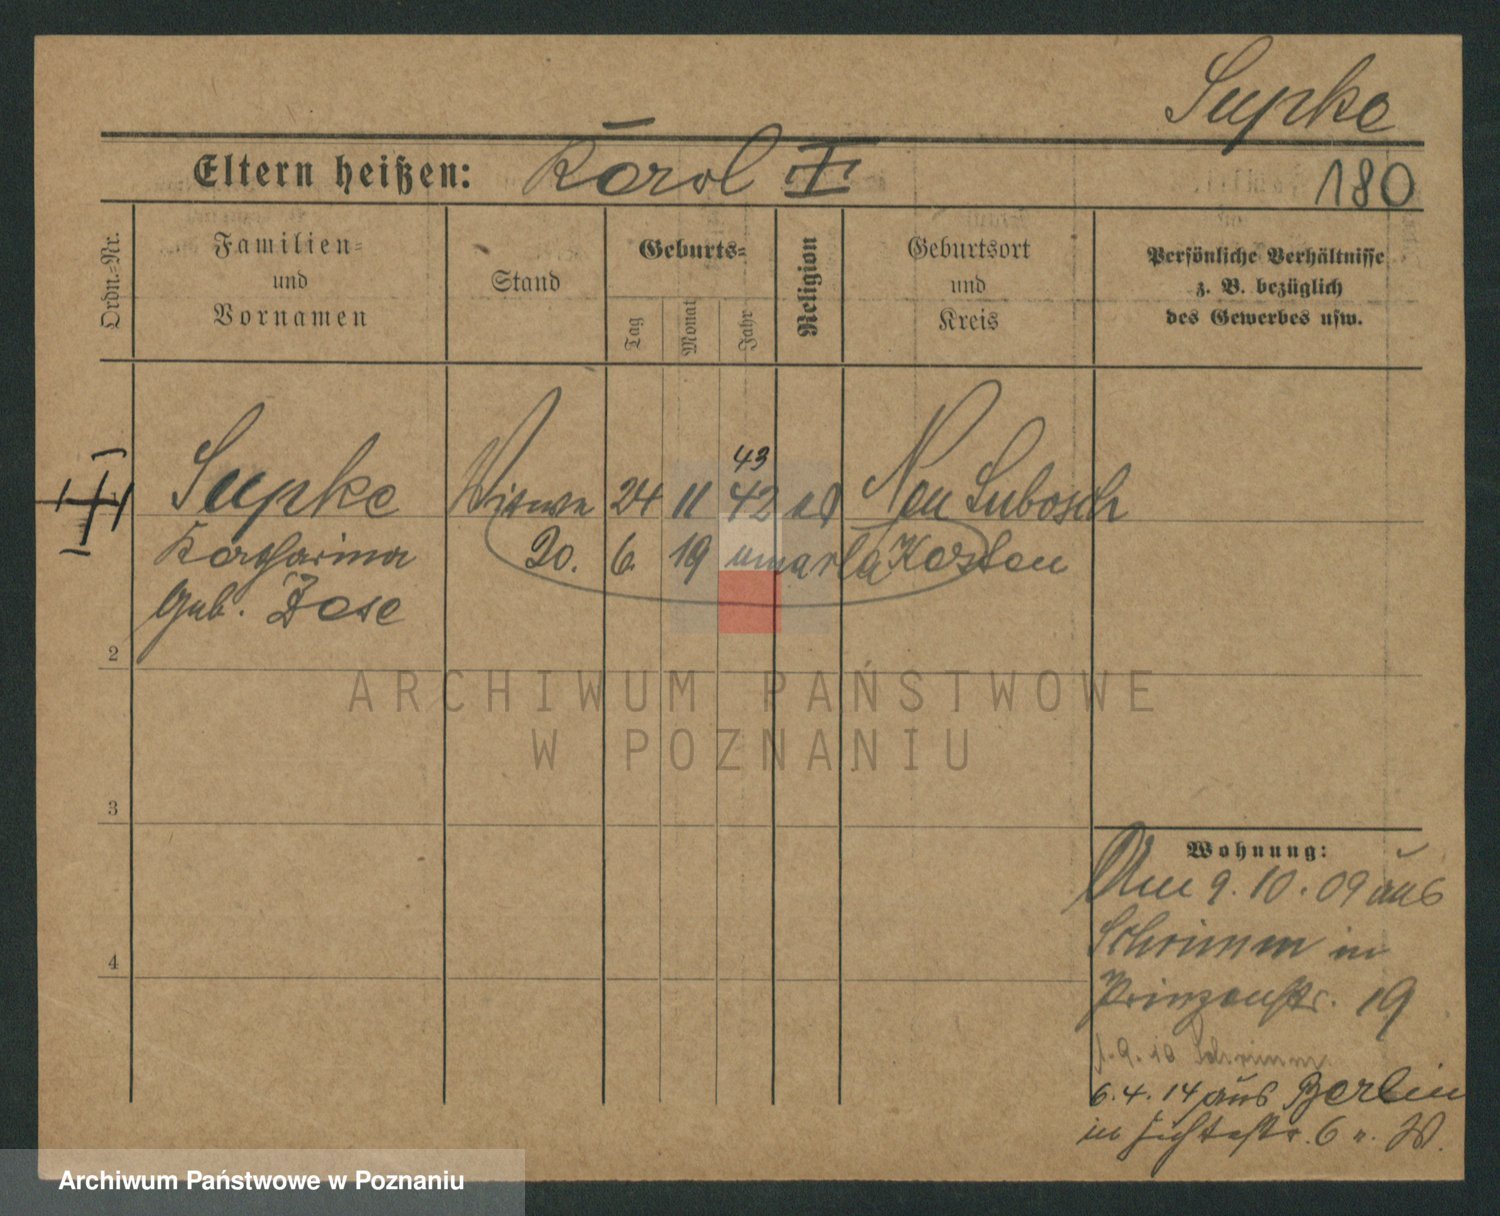 Supke
Eltern heißen: Karol I
180
Ordn.=Nr.
Familien=
und
Vornamen
Stand
Geburts=
Tag
Monat
Jahr
Religion
Geburtsort
und
Kreis
Persönliche Verhältnisse
z. B. bezüglich
des Gewerbes usw.
43
Supke Witwe 24 11 42 Neu Lubosch
Katharina 20. 6. 19 umarła Kosten
geb. Dose
2
3
4
ARCHIWUM PAŃSTWOWE
W POZNANIU
Wohnung:
Am 9. 10. 09 aus
Schrimm in
Prinzenstr. 19
1. 9. 10 Schrimm
6. 4. 14 aus Berlin
in Fichtestr. 6 W.
Archiwum Państwowe w Poznaniu